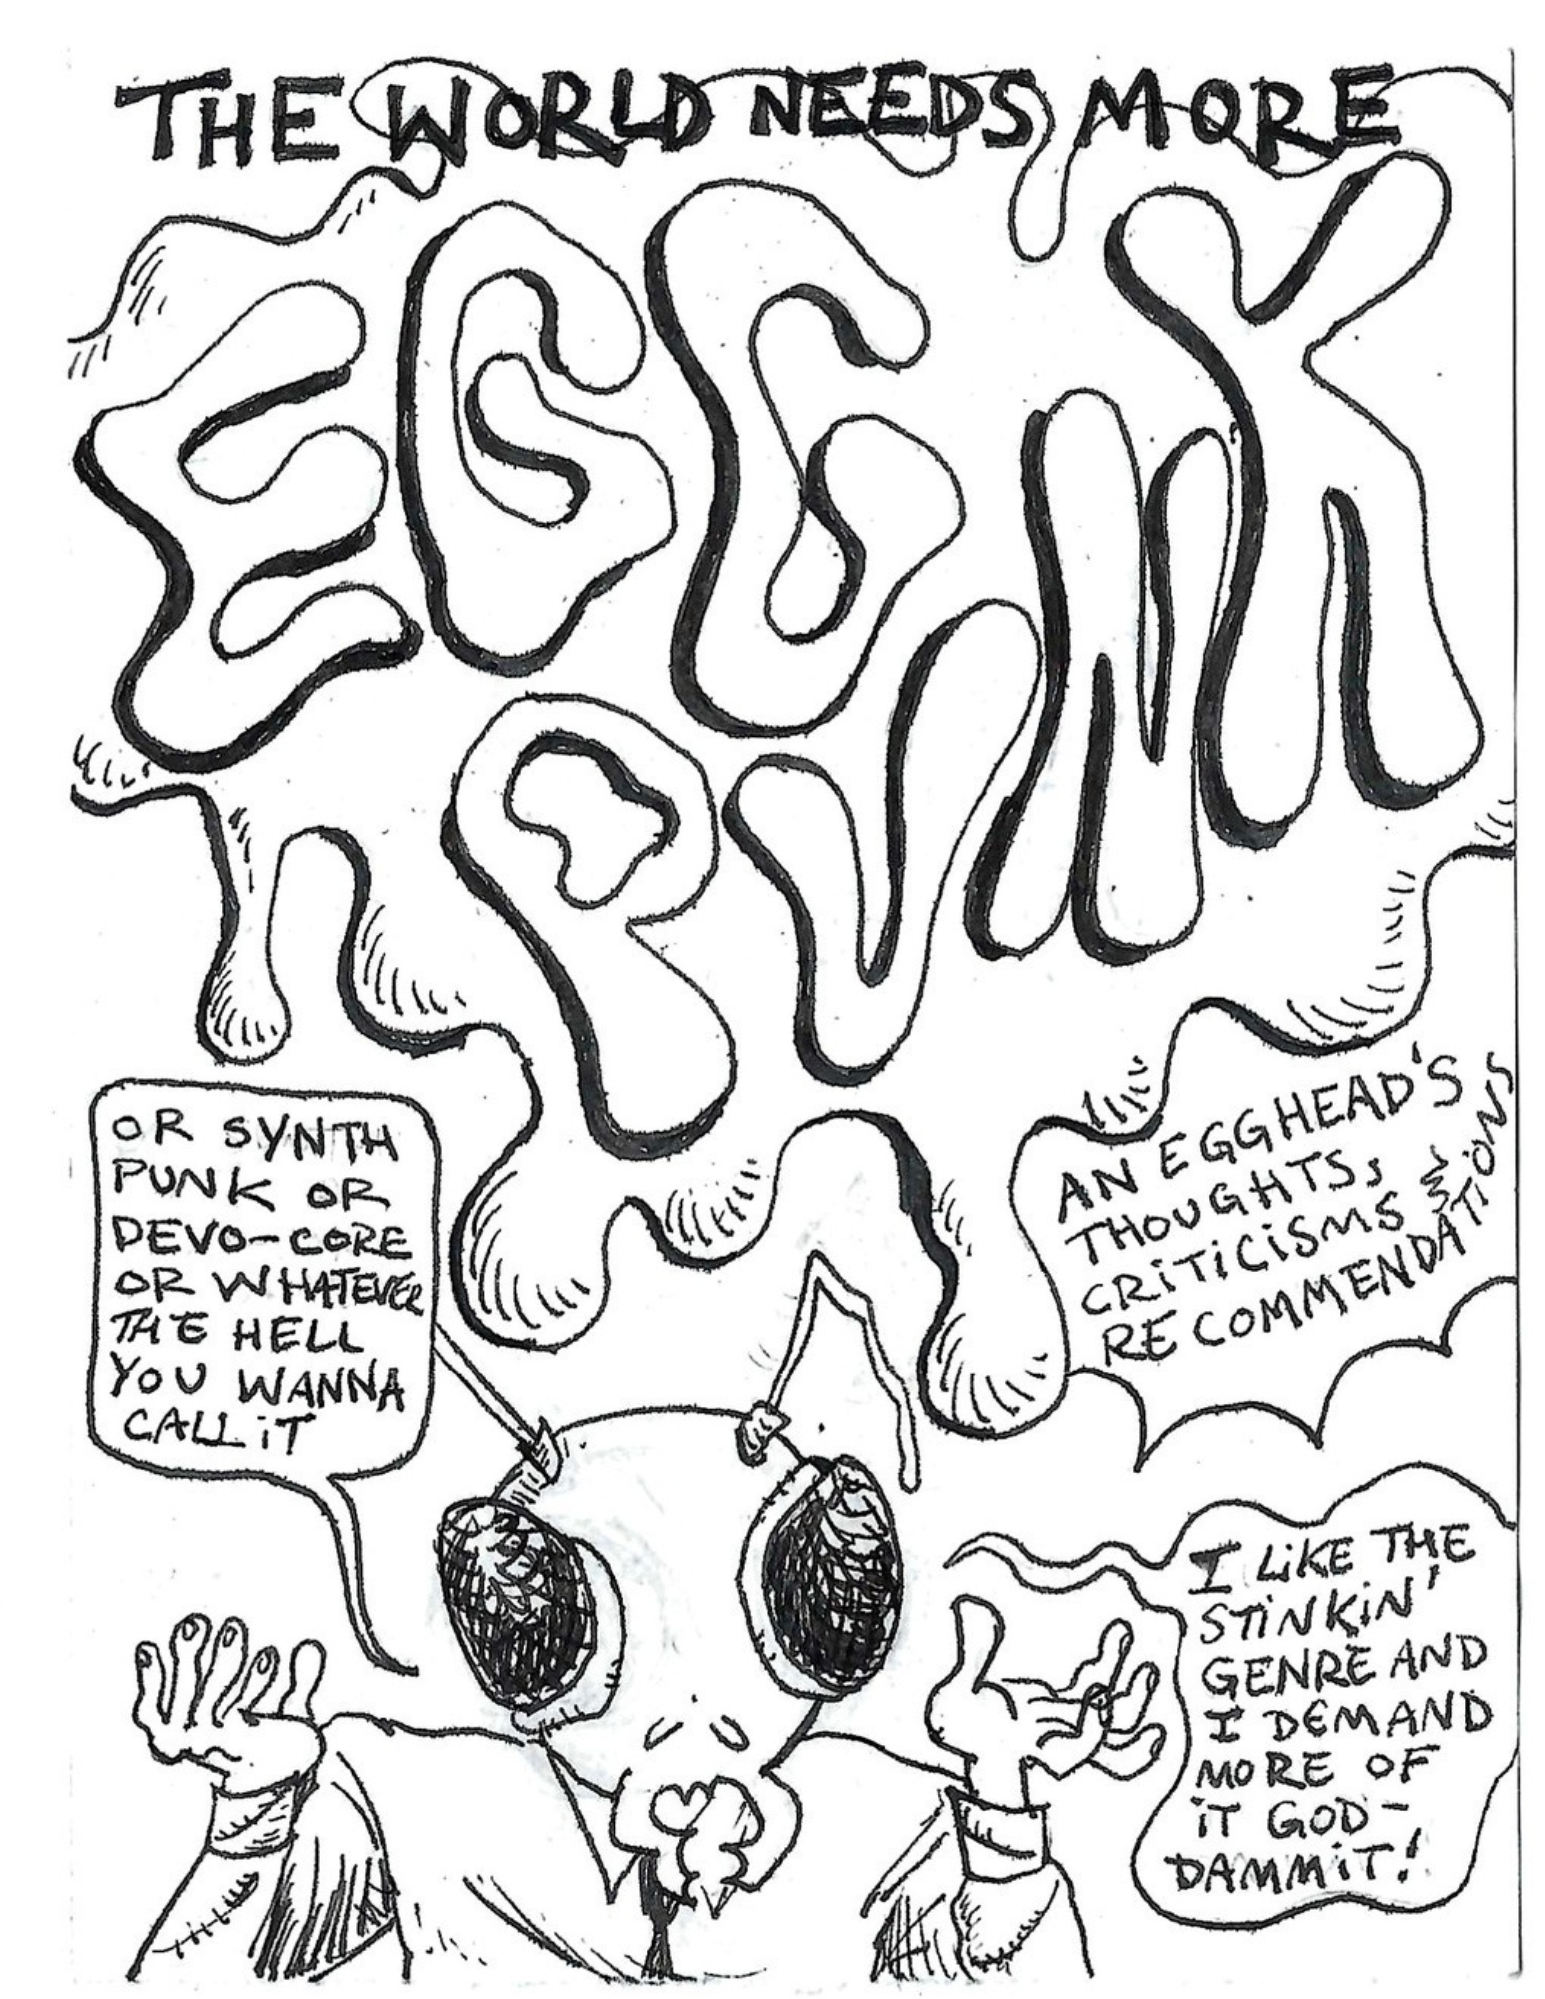 THE WORLD NEEDS MORE
EGG
PUNK
OR SYNTH
PUNK OR
DEVO-CORE
OR WHATEVER
THE HELL
YOU WANNA
CALL iT
AN EGGHEAD'S
THOUGHTS,
CRiTiCiSMS &
RECOMMENDATiONS
I LiKE THE
STiNKiN'
GENRE AND
I DEMAND
MORE OF
iT GOD-
DAMMiT!